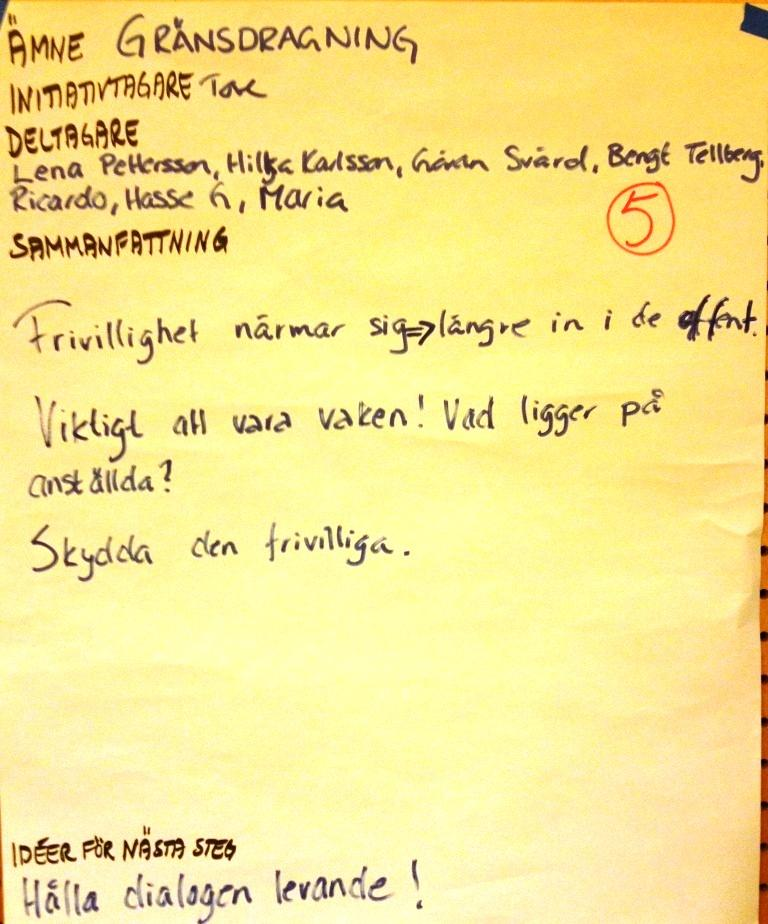 ÄMNE GRÄNSDRAGNING
INITIATIVTAGARE Tove
DELTAGARE
Lena Pettersson, Hilka Karlsson, Göran Svärd, Bengt Tellberg,
Ricardo, Hasse G, Maria
5
SAMMANFATTNING
Frivillighet närmar sig => längre in i de offent.
Viktigt att vara vaken! Vad ligger på
anställda?
Skydda den frivilliga.
IDÉER FÖR NÄSTA STEG
Hålla dialogen levande!